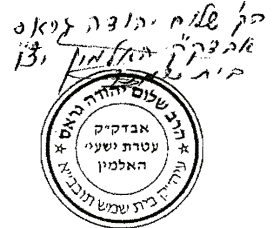 הק' שלום יהודה גראס
אבדק"ק האלמין יצ"ו
בית שמש
הרב שלום יהודה גראס
אבדק״ק
עטרת ישעי׳
האלמין
עיה״ק בית שמש תובב״א